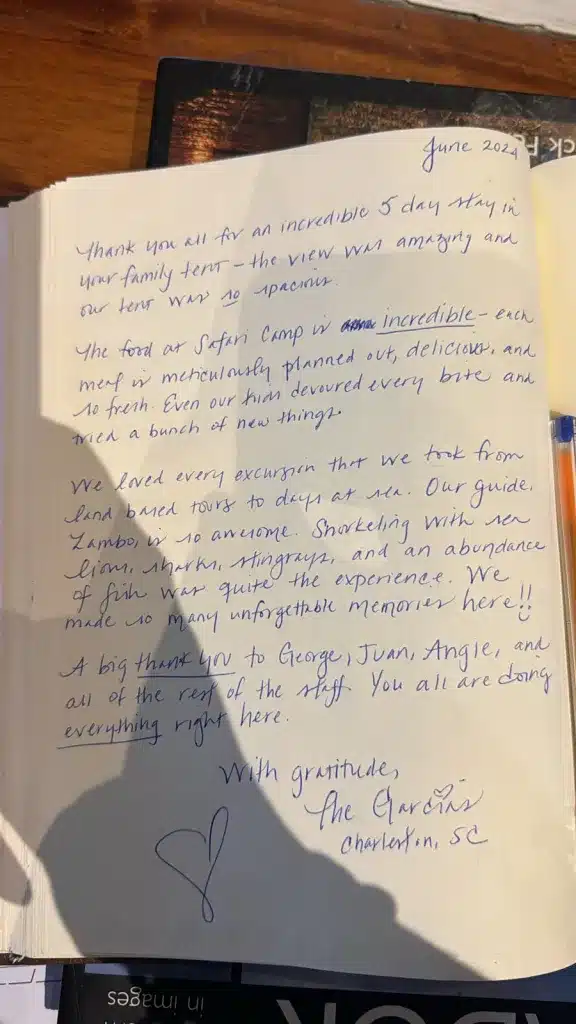 June 2024
Thank you all for an incredible 5 day stay in
your family tent - the view was amazing and
our tent was so spacious.
The food at Safari Camp is incredible - each
meal is meticulously planned out, delicious, and
so fresh. Even our kids devoured every bite and
tried a bunch of new things.
We loved every excursion that we took from
land based tours to days at sea. Our guide,
Zambo, is so awesome. Snorkeling with sea
lions, sharks, stingrays, and an abundance
of fish was quite the experience. We
made so many unforgettable memories here!!
A big thank you to George, Juan, Angie, and
all of the rest of the staff. You all are doing
everything right here.
With gratitude,
The Garcias
Charleston, SC
in images